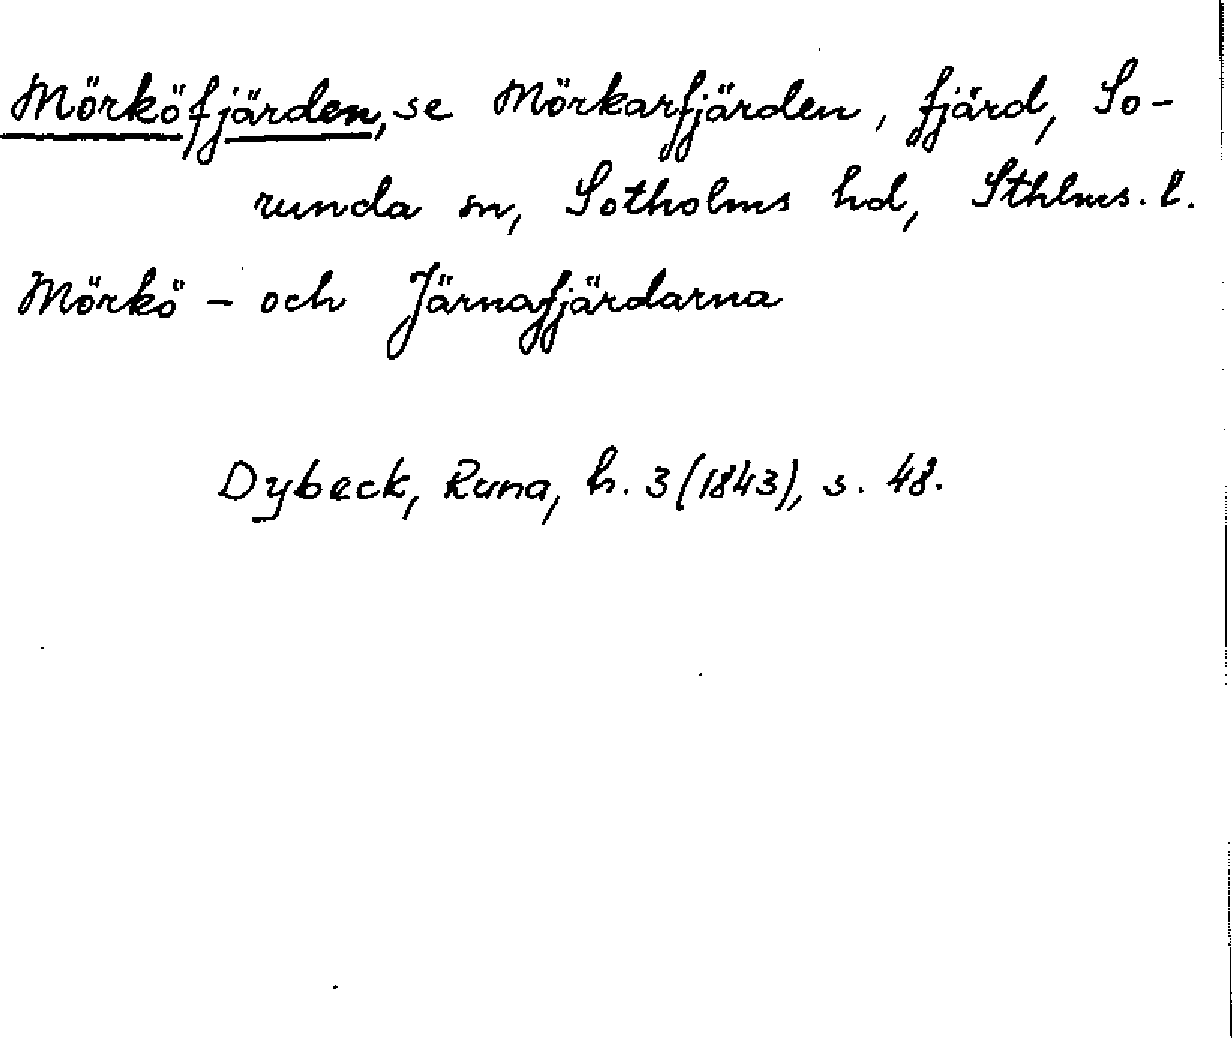 Mörköfjärden, se Mörkarfjärden, fjärd, So-
runda sn, Sotholms hd, Sthlms. l.
Mörkö- och Järnafjärdarna
Dybeck, Runa, h. 3 (1843), s. 48.